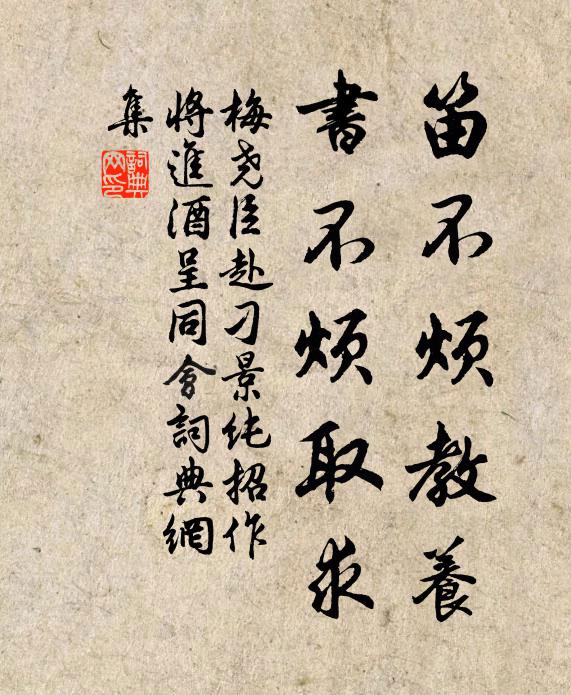 笛不烦教養
書不烦取求
梅尧臣赴刁景纯招作
將進酒呈同會詞典網
集
詞典
网印